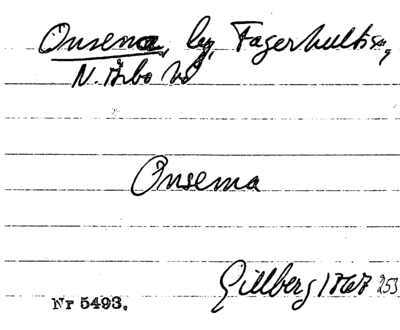 Onsema, by, Fagerhults sn,
N. Åsbo hd
Onsema
Gillberg 1767 253
Nr 5493.